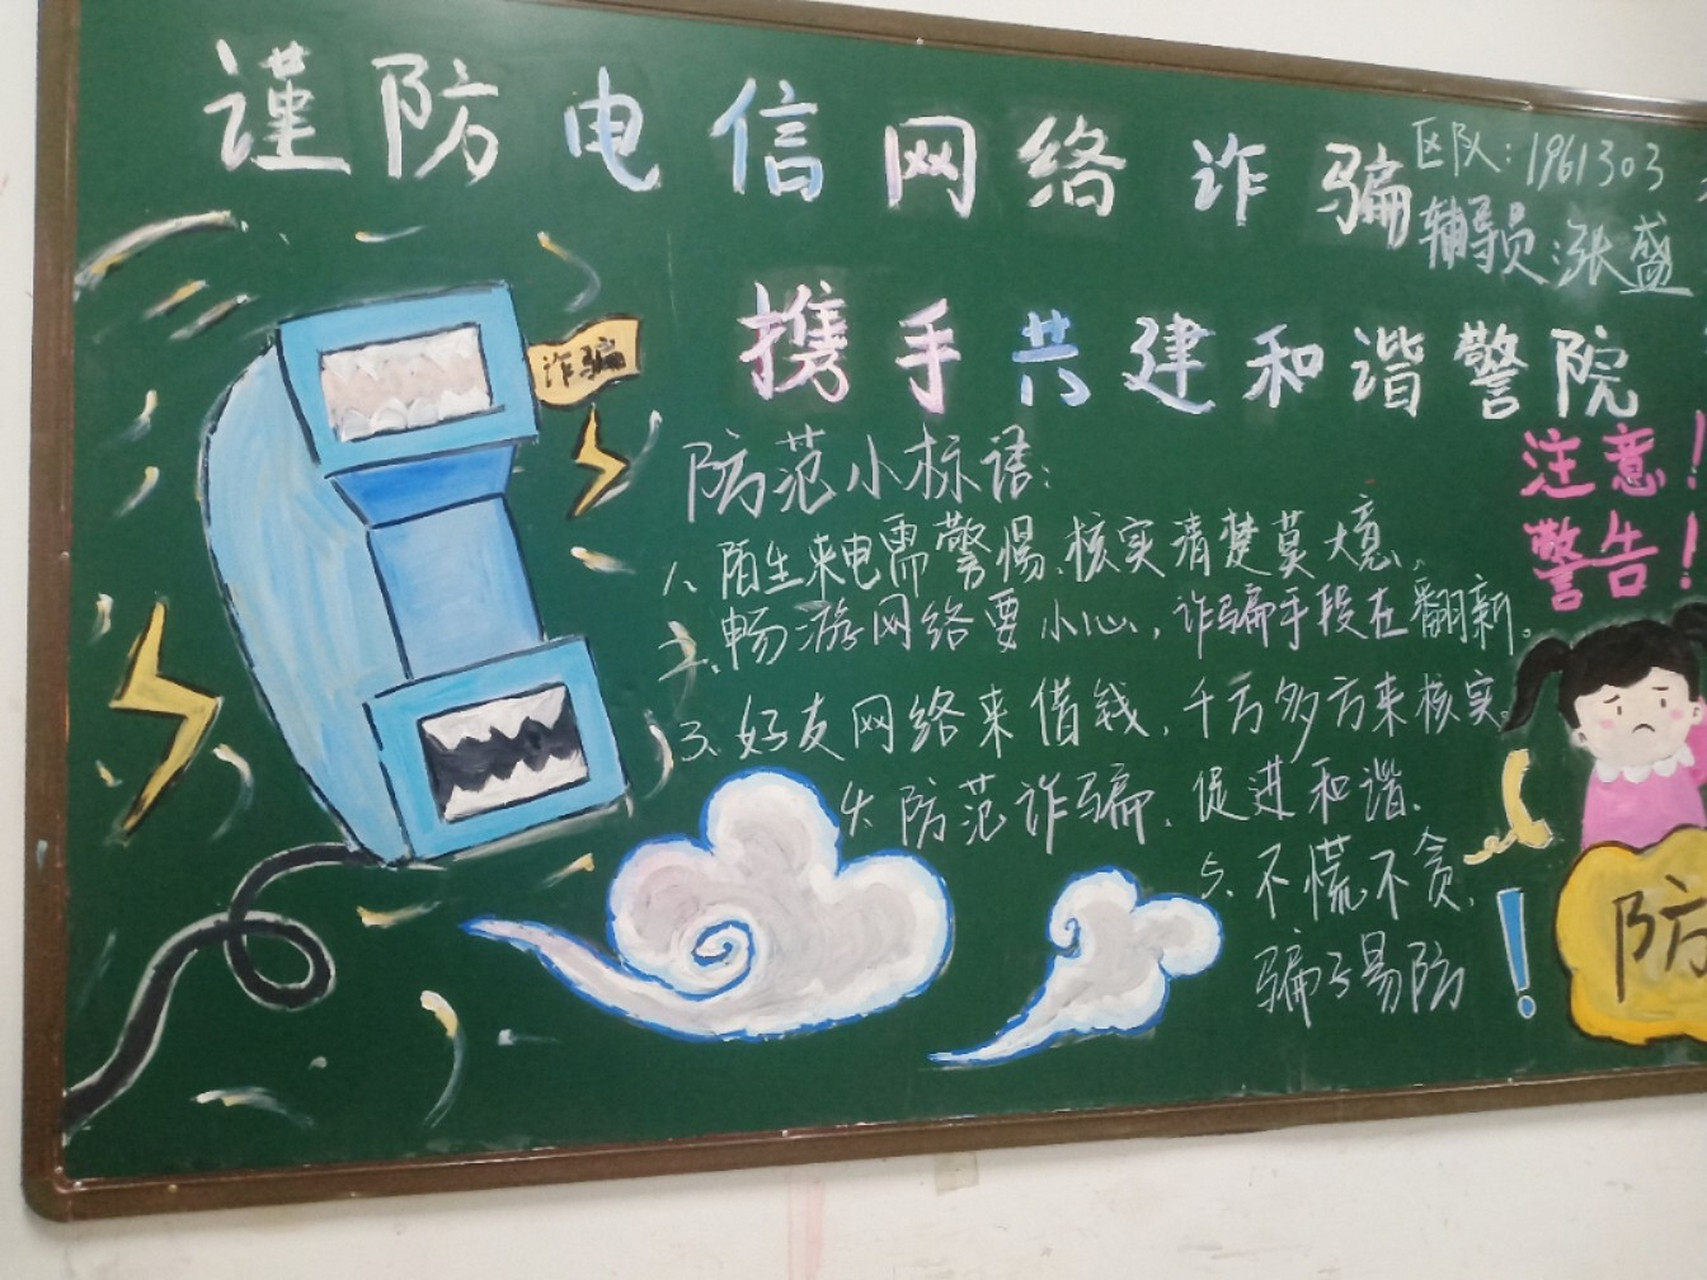 谨防电信网络诈骗
区队：1961303
辅导员：张盛
携手共建和谐警院
诈骗
防范小标语：
1、陌生来电需警惕、核实清楚莫大意、
2、畅游网络要小心，诈骗手段在翻新。
3、好友网络来借钱，千方多方来核实。
4、防范诈骗、促进和谐、
5、不慌不贪，
骗子易防
注意！
警告！
防